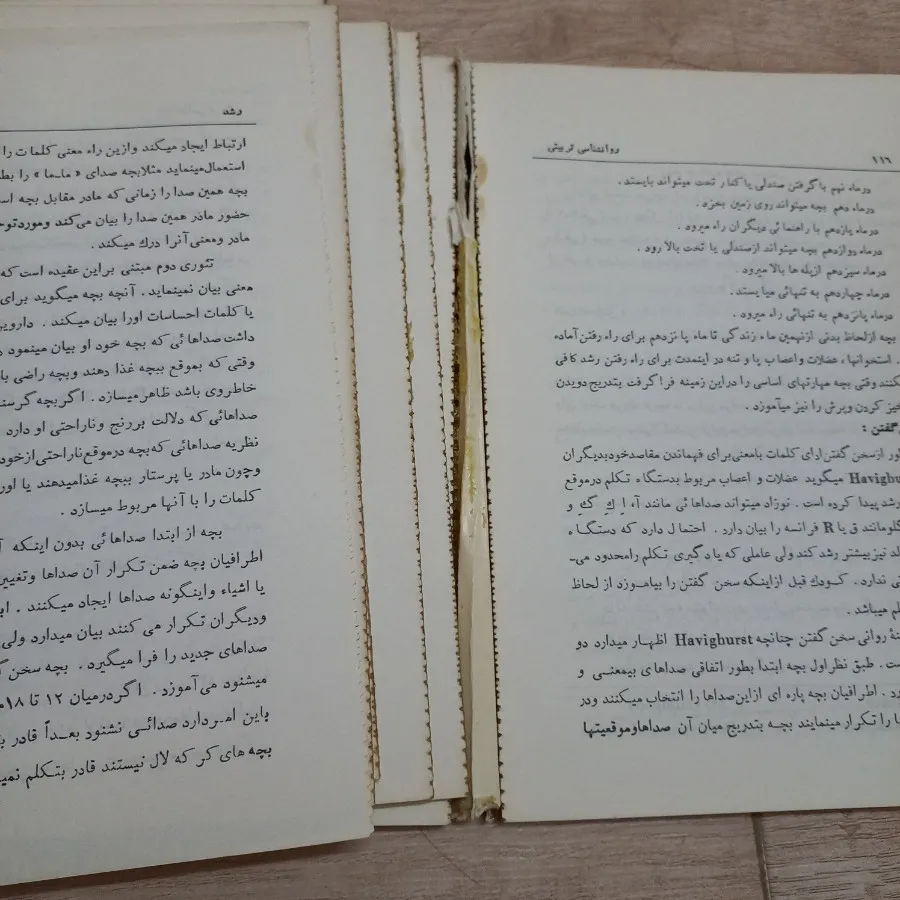 ۱۱۶
روانشناسی تربیتی
درماه نهم با گرفتن صندلی یا کنار تخت میتواند بایستد .
درماه دهم بچه میتواند روی زمین بخزد .
درماه یازدهم با راهنمائی دیگران راه میرود .
درماه دوازدهم بچه میتواند ازصندلی یا تخت بالا رود .
درماه سیزدهم ازپله‌ها بالا میرود .
درماه چهاردهم به تنهائی میایستد .
درماه پانزدهم به تنهائی راه میرود .
بچه ازلحاظ بدنی ازنهمین ماه زندگی تا ماه پانزدهم برای راه رفتن آماده
. استخوانها، عضلات واعصاب پا و تنه در اینمدت برای راه رفتن رشد کافی
کنند وقتی بچه مهارتهای اساسی را دراین زمینه فرا گرفت بتدریج دویدن
خیز کردن وپرش را نیز میآموزد .
گفتن :
ازسخن گفتن ادای کلمات بامعنی برای فهماندن مقاصد خود بدیگران
میگوید عضلات و اعصاب مربوط بدستگاه تکلم درموقع
رشد پیدا کرده است . نوزاد میتواند صداهائی مانند آ، اِ كِ گِ و
مانند ق یا R فرانسه را بیان دارد . احتمال دارد که دستگاه
نیز بیشتر رشد کند ولی عاملی که یادگیری تکلم رامحدود می‌-
ندارد . کودك قبل ازاینکه سخن گفتن را بیاموزد از لحاظ
میباشد .
روانی سخن گفتن چنانچه Havighurst اظهار میدارد دو
. طبق نظراول بچه ابتدا بطور اتفاقی صداهای بیمعنی و
. اطرافیان بچه پاره ای ازاین صداها را انتخاب میکنند ودر
را تکرار مینمایند بچه بتدریج میان آن صداهاوموقعیتها
رشد
ارتباط ایجاد میکند وازین راه معنی کلمات را
استعمال مینماید مثلا بچه صدای « ماـما » را
بچه همین صدا را زمانی که مادر مقابل بچه
حضور مادر همین صدا را بیان می‌کند ومورد
مادر ومعنی آنرا درك میکند .
تئوری دوم مبتنی براین عقیده است که
معنی بیان نمینماید . آنچه بچه میگوید برای
یا کلمات احساسات اورا بیان میکند .
داشت صداهائی که بچه خود او بیان مینمود
وقتی که بموقع ببچه غذا دهند وبچه راضی
خاطروی باشد ظاهر میسازد . اگر بچه
صداهائی که دلالت بررنج وناراحتی او دارد
نظریه صداهائی که بچه درموقع ناراحتی ازخود
وچون مادر یا پرستار ببچه غذامیدهند یا
کلمات را با آنها مربوط میسازد .
بچه از ابتدا صداهائی بدون اینکه
اطرافیان بچه ضمن تکرار آن صداها وتغییر
یا اشیاء واینگونه صداها ایجاد میکنند .
ودیگران تکرار می کنند بیان میدارد ولی
صداهای جدید را فرا میگیرد . بچه سخن
میشنود می‌آموزد . اگر درمیان ۱۲ تا ۱۸
باین امر دارد صدائی نشنود بعداً قادر
بچه های کر که لال نیستند قادر بتکلم